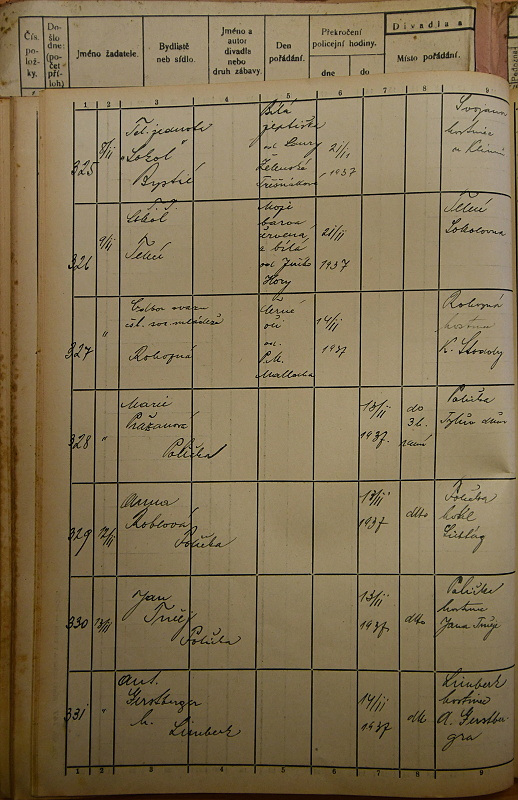 Čís. po- lož- ky.
Do- šlo dne: (po- čet pří- loh)
Jméno žadatele.
Bydliště neb sídlo.
Jméno a autor divadla neb druh zábavy.
Den pořádání.
Překročení policejní hodiny.
dne do
Divadla a
Místo pořádání.
1 2 3 4 5 6 7 8 9
325 8/II Těl. jednota
"Sokol"
Bystré
Bílá
jeptiška
od
Železenské
21/II
1937
Svojanov
hostinec
326 9/II T. J.
Sokol
Telecí
Moje
barva
červená
a bílá
od Jiřího
Hory
21/II
1937
Telecí
Sokolovna
327 "
Odbor svazu
čsl. soc. mládeže
Rohozná
Černé
oči
od
P.M.
Malloda
14/II
1937
Rohozná
hostinec
K. Stodoly
328 "
Marie
Pražanová
Polička
13/II
1937.
do
3 h.
ranní
Polička
Tylův dům
329 12/II
Anna
Roblová
Polička
17/II
1937
dtto
Polička
hotel
330 13/II
Jan
Polička
13/II
1937
dtto
Polička
hostinec
Jana
331 "
Ant.
Gerstberger
h.
Limberk
14/II
1937
dtto
Limberk
hostinec
A. Gerstber-
gra
1 2 3 4 5 6 7 8 9